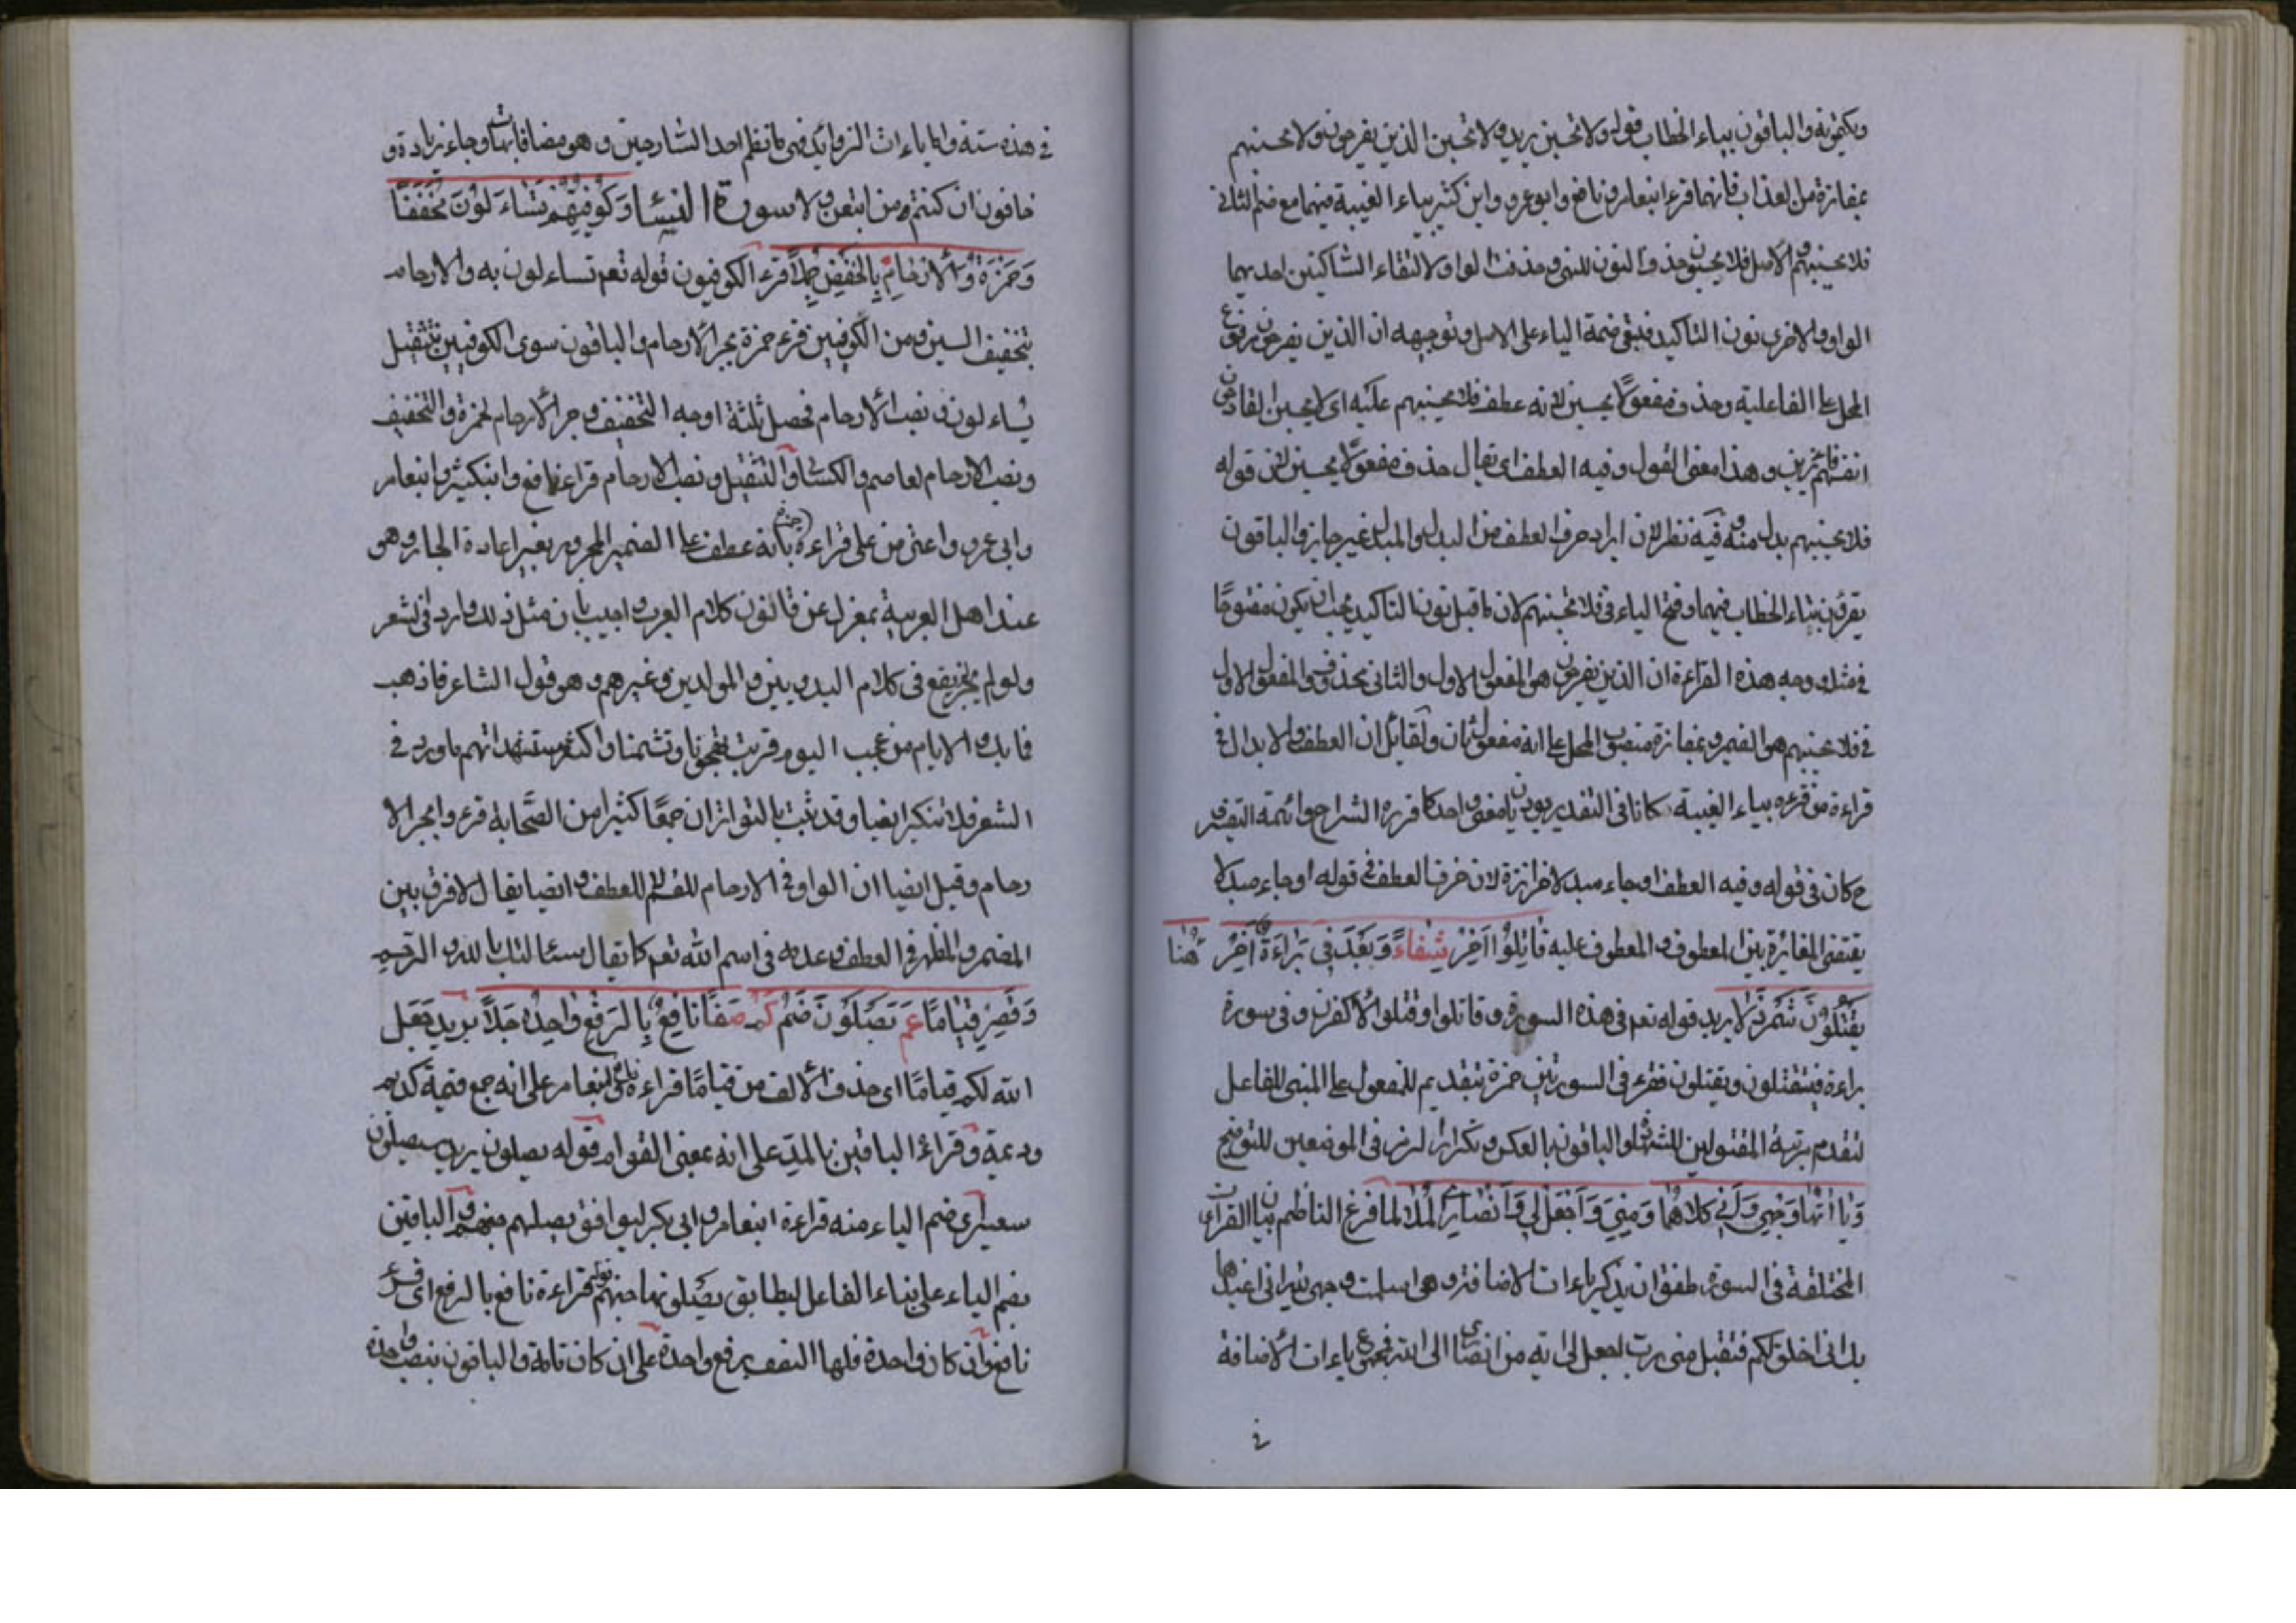 ويكتمونه والباقون بتاء الخطاب قوله ولا تحسبن يريد ولا تحسبن الذين يفرحون ولا تحسبنهم
بمفازة من العذاب فانهما قرء ابنعامر ونافع وابو عمرو وابن كثير بياء الغيبة فيهما مع ضم الثاني
فلا يحسبنهم والاصل فلا يحسبون حذف النون للنهي وحذفت الواو لالتقاء الساكنين احديهما
الواو والاخرى نون التاكيد فتبقى ضمة الباء على الاصل وتوجيهه ان الذين يفرحون مرفوع
المحل على الفاعلية وحذف مفعولا يحسبن لانه عطف فلا يحسبنهم عليه اى لا يحسبن الفارحون
انفسهم فائزين وهذا معنى القول وفيه العطف اى يقال حذف مفعولا يحسبن لان قوله
فلا يحسبنهم بدل منه وفيه نظر لان ايراد حرف العطف من البدل والمبدل غير جايز والباقون
يقرؤن بتاء الخطاب فيهما وفتح الباء فى فلا تحسبنهم لان ما قبل نون التاكيد يجب ان يكون مفتوحا
فى مثله ووجه هذه القراءة ان الذين يفرحون هو المفعول الاول والثانى محذوف والمفعول الاول
فى فلا تحسبنهم هو الضمير وبمفازة منصوب المحل على انه مفعول ثان ولقائل ان العطف والابدال فى
قراءة من قرءه بياء الغيبة كانا فى التقدير يؤديان معنى واحدا كما قرره الشراح وائمة التفسير
ح كان فى قوله وفيه العطف او جاء مبدلا حزازة لان حرف العطف فى قوله او جاء مبدلا
يقتضى المغايرة بين المعطوف والمعطوف عليه قَاتَلُوا اَخِّرْ شِفَاءً وَبَعْدَ فِى بَرَاءَةَ اَخِّرْ هُنَا
يَقْتُلُونَ شَمَرْدَلا يريد قوله تعم فى هذه السورة وقاتلوا وقتلوا لاكفرن وفى سورة
براءة فيقتلون ويقتلون فقرء فى السورتين حمزة بتقديم للمفعول على المبنى للفاعل
لتقدم مرتبة المقتولين للشهادة والباقون بالعكس وتكرار الرمز فى الموضعين للتوضيح
وَيَا اتُهَا وَجْهِىَ وَاِنِّى كِلاَهُمَا وَمِنِّى وَاجْعَلْ لِى وَاَنْصَارِىَ الْمُلاَ لما فرغ الناظم من بيان القراءات
المختلفة فى السورة طفق ان يذكر ياءات الاضافة وهى اسلمت وجهى لله انى اعيذها
بك انى اخلق لكم فتقبل منى رب اجعل لى اية من انصارى الى الله فمجموع ياءات الاضافة
فى
فى هذه ستة واما ياءات الزوائد فهى ما نظم احد الشارحين وهو مضافاتها وجاء زيادة و
خافون ان كنتم ومن اتبعن ولا سورة النساء وَكُوفِيُّهُمْ تَسَّاءَلُونَ مُخَفَّفًا
وَحَمْزَةُ وَالْاَرْحَامِ بِالْخَفْضِ جَمَّلاَ قرء الكوفيون قوله تعم تساءلون به والارحام
بتخفيف السين ومن الكوفيين قرء حمزة بجر الارحام والباقون سوى الكوفيين بتثقيل
يساءلون ونصب الارحام فحصل ثلثة اوجه التخفيف وجر الارحام لحمزة والتخفيف
ونصب الارحام لعاصم والكسائى والتثقيل ونصب الارحام قراءة نافع وابنكثير وابنعامر
وابى عمرو واعترض على قراءة حمزة بانه عطف على الضمير المجرور بغير اعادة الجار وهو
عند اهل العربية بمعزل عن قانون كلام العرب واجيب بان مثل ذلك وارد فى الشعر
ولو لم يجز لم يقع فى كلام البدويين والمولدين وغيرهم وهو قول الشاعر فاذهب
فما بك والايام من عجب اليوم قربت تهجونا وتشتمنا واكثر مستشهداتهم ما ورد فى
الشعر فلا تنكر ايضا وقد ثبت بالتواتر ان جمعا كثيرا من الصحابة قرءوا بجر الا
رحام وقيل ايضا ان الواو فى الارحام للقسم لا للعطف وايضا يقال لا فرق بين
المضمر والمظهر فى العطف وعدمه فى اسم الله تعم كما يقال سئالتك بالله والرحم
وَقَصْرُ قِيَامًا عَمَّ يَصْلَوْنَ ضُمَّ كَمْ صَفَا نَافِعٌ بِالرَّفْعِ وَاحِدَةٌ جَلاَ يريد جعل
الله لكم قياما اى حذف الالف من قياما قراءة نافع وابنعامر على انه جمع قيمة كديم
وديمة وقراءة الباقين بالمد على انه بمعنى القوام وقوله يصلون يريد سيصلون
سعيرا اى ضم الياء منه قراءة ابنعامر وابى بكر ليوافق يصليهم جهنم والباقين
بضم الياء على بناء الفاعل ليطابق يصلونها جهنم قوله قراءة نافع بالرفع اى قرء
نافع وان كان واحدة فلها النصف برفع واحدة على ان كان تامة والباقون بنصب واحدة